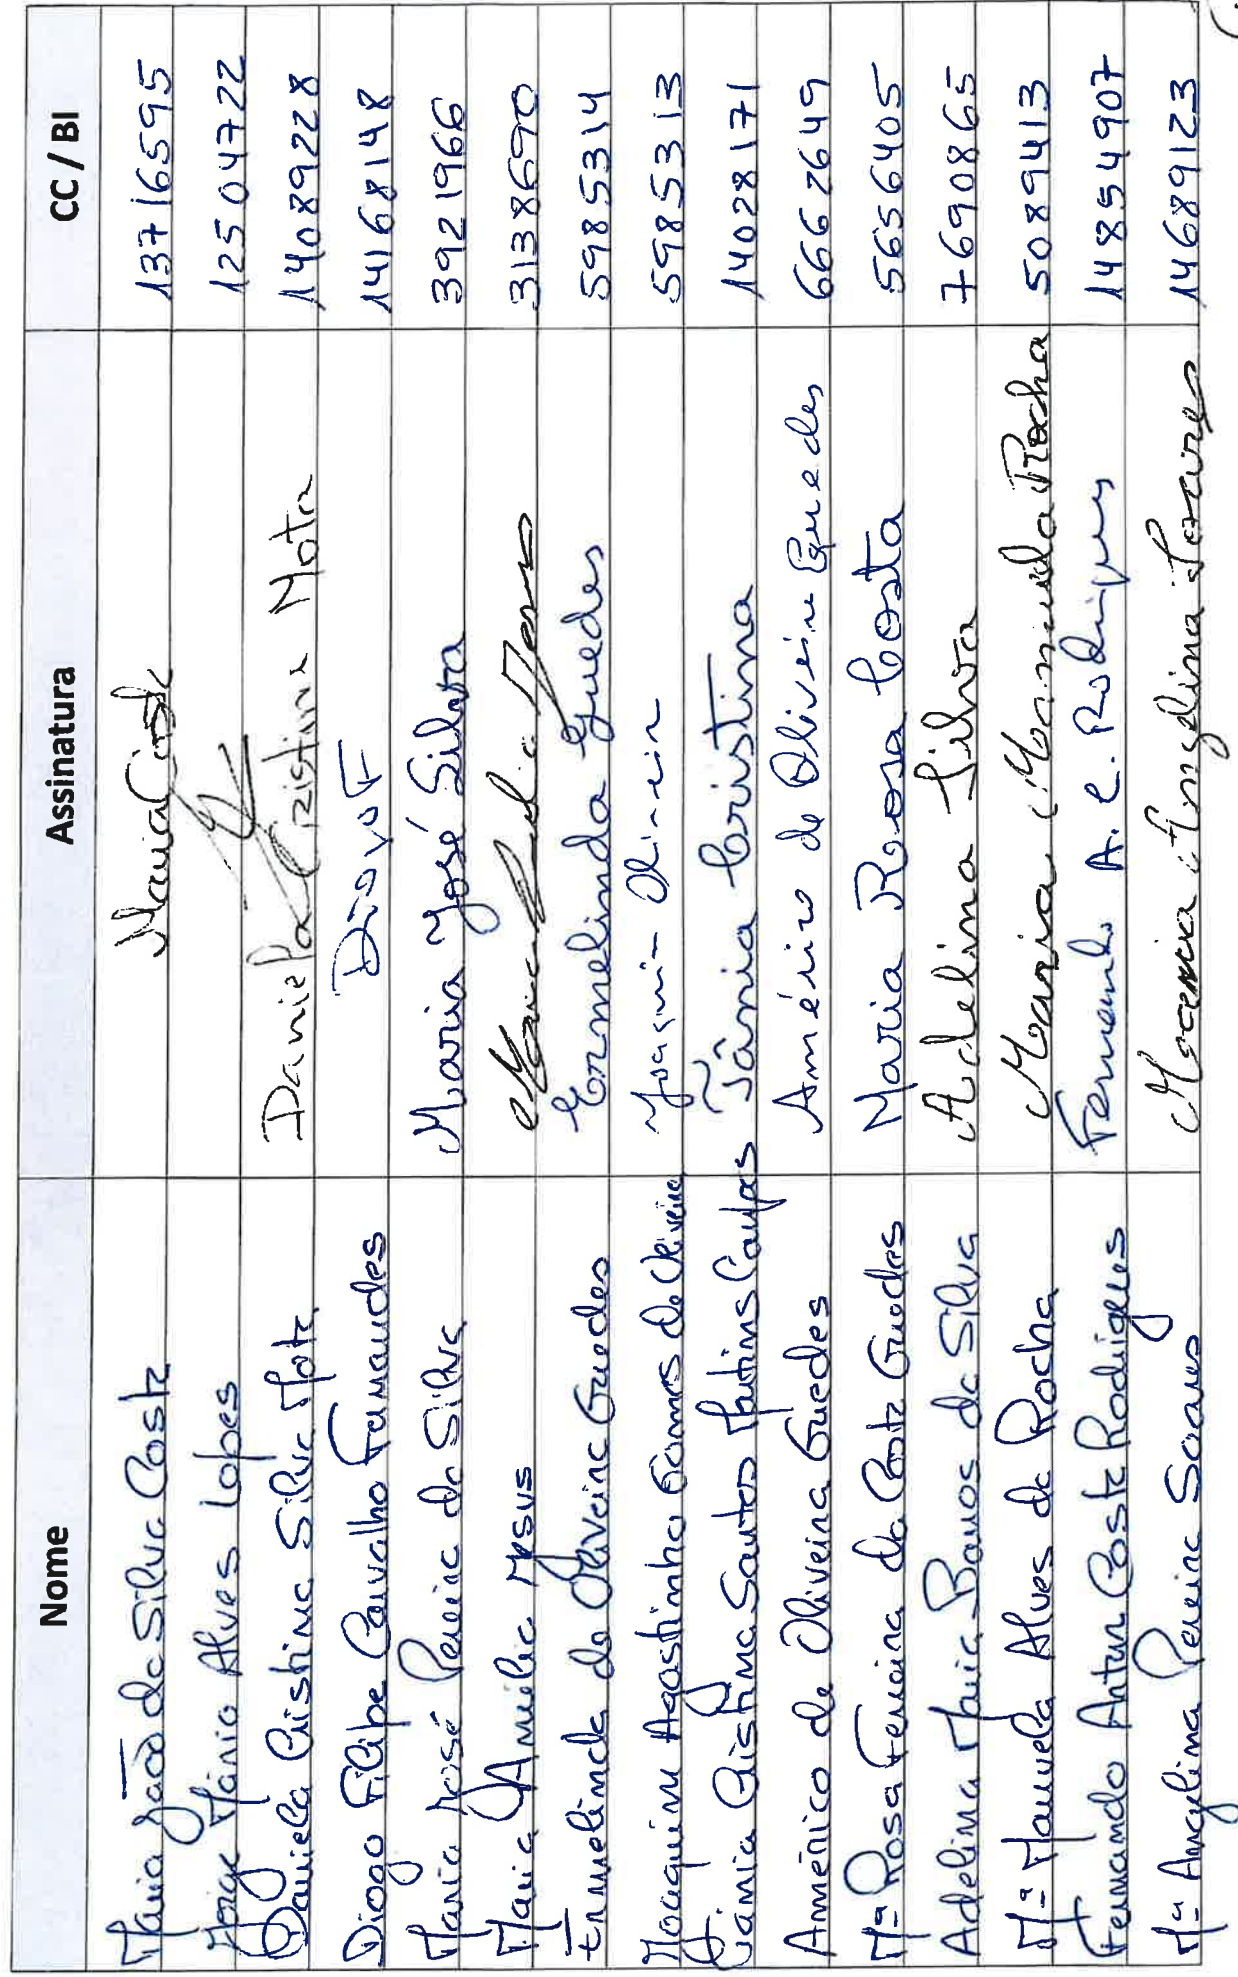 Nome Assinatura CC / BI
Maria João da Silva Costa Maria Costa 13716595
Jorge Mário Alves Lopes 12504722
Daniela Cristina Silva Mota Daniela Cristina Mota 14089228
Diogo Filipe Carvalho Fernandes 14168148
Maria José Pereira da Silva Maria José Silva 3921966
Maria Amélia Jesus 3138690
Ermelinda de Oliveira Guedes Ermelinda Guedes 5985314
Joaquim Agostinho Gomes de Oliveira Joaquim Oliveira 5985313
Tânia Cristina Santos Martins Campos Tânia Cristina 14028171
Américo de Oliveira Guedes Américo de Oliveira Guedes 6662649
Mª Rosa Ferreira da Costa Guedes Maria Rosa Costa 5656405
Adelina Maria Barros da Silva Adelina Silva 7690865
Mª Manuela Alves da Rocha Maria Manuela Rocha 5089413
Fernando Artur Costa Rodrigues Fernando A. C. Rodrigues 14854907
Mª Angelina Pereira Soares Maria Angelina Soares 14689123